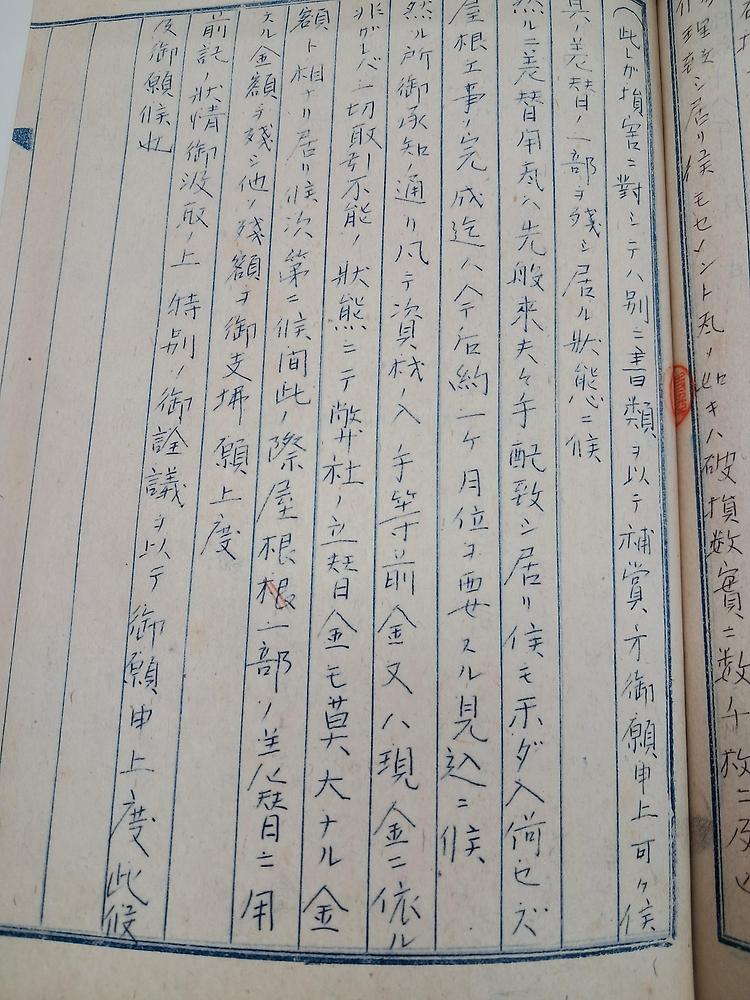 理致シ居リ候モセメント瓦ノ如キハ破損数實ニ数千枚ニ及ヒ
(此レガ損害ニ對シテハ別ニ書類ヲ以テ補賞方御願申上可ク候
其ノ差替ノ一部ヲ残シ居ル状態ニ候
然ルニ差替用瓦ハ先般来夫々手配致シ居リ候モ未ダ入荷セズ
屋根工事ノ完成迄ハ今后約一ケ月位ヲ要スル見込ニ候
然ル所御承知通リ凡テ資材ノ入手等前金又ハ現金ニ依ル
非ザレバ一切取引不能ノ状態ニテ弊社ノ立替金モ莫大ナル金
額ト相ナリ居リ候次第ニ候間此ノ際屋根根一部ノ差替ニ用
ナル金額ヲ残シ他ノ残額ヲ御支拂願上度
前記ノ状情御汲取ノ上特別ノ御詮議ヲ以テ御願申上度此段
及御願候也